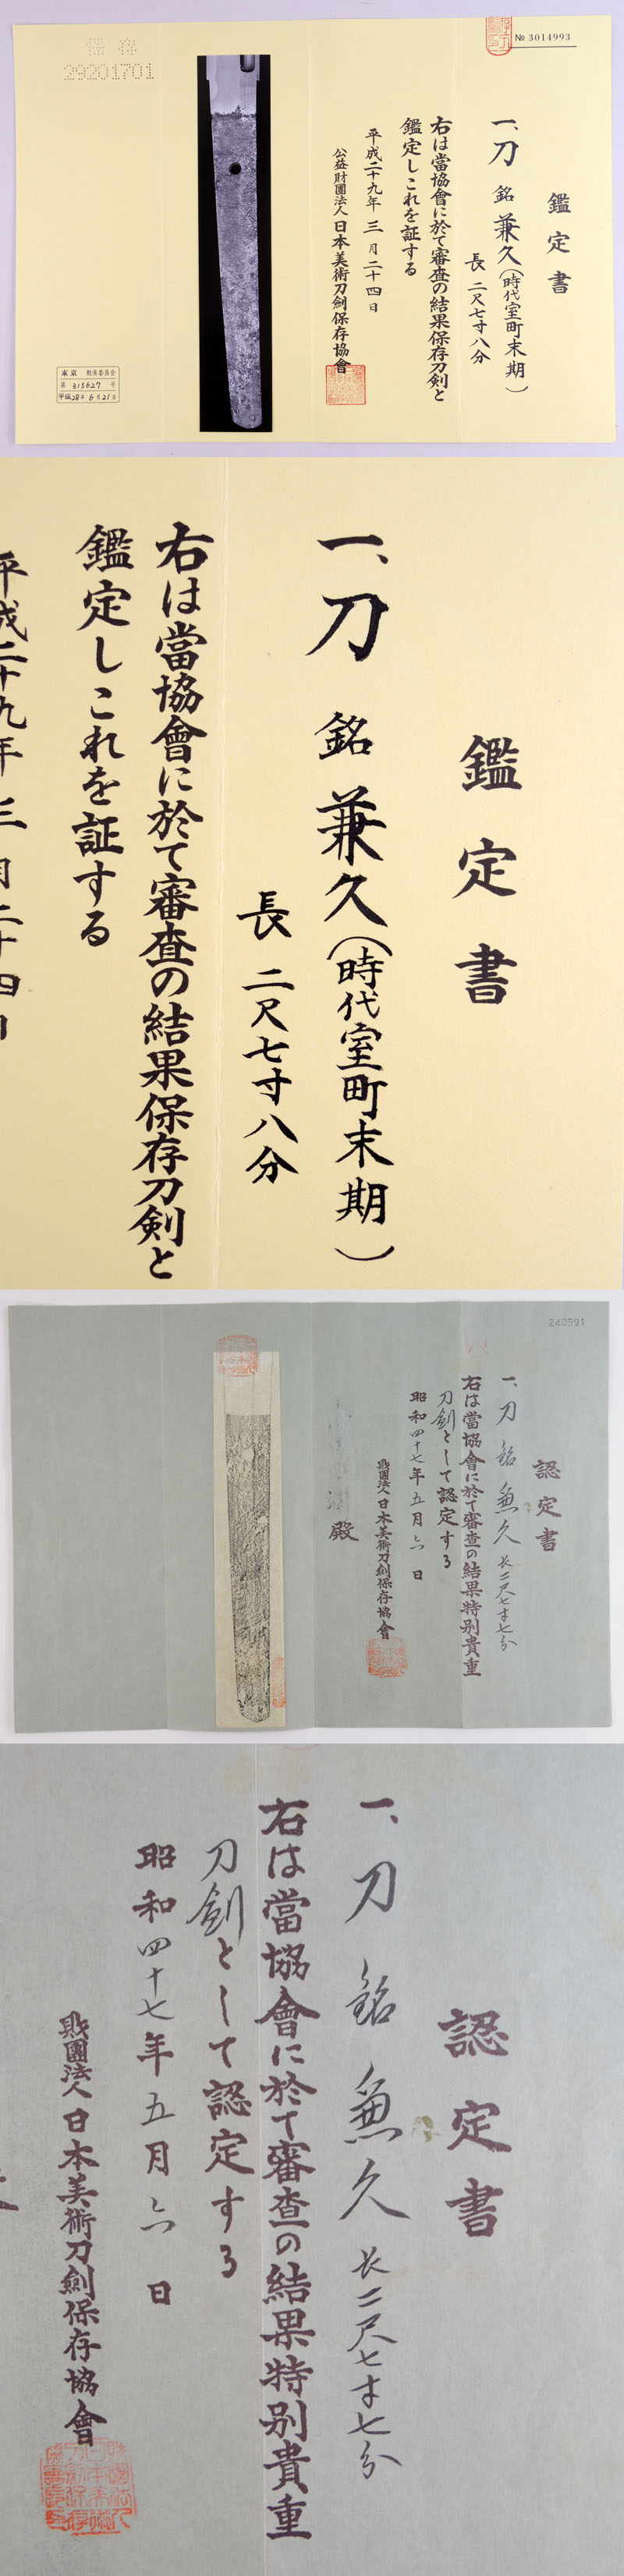 № 3014993
保存
29201701
鑑定書
一、刀 銘 兼久(時代室町末期)
長 二尺七寸八分
右は當協會に於て審査の結果保存刀剣と
鑑定しこれを証する
平成二十九年 三月二十四日
公益財團法人 日本美術刀劍保存協會
東京 教育委員会
第 315627 号
平成28年 6月21日
鑑定書
一、刀 銘 兼久(時代室町末期)
長 二尺七寸八分
右は當協會に於て審査の結果保存刀剣と
鑑定しこれを証する
平成二十九年 三月二十四日
240591
認定書
一、刀 銘 兼久 長二尺七寸七分
右は當協會に於て審査の結果特別貴重
刀劍として認定する
昭和四十七年五月六日
財團法人日本美術刀劍保存協會
殿
認定書
一、刀 銘 兼久 長二尺七寸七分
右は當協會に於て審査の結果特別貴重
刀劍として認定する
昭和四十七年五月六日
財團法人日本美術刀劍保存協會